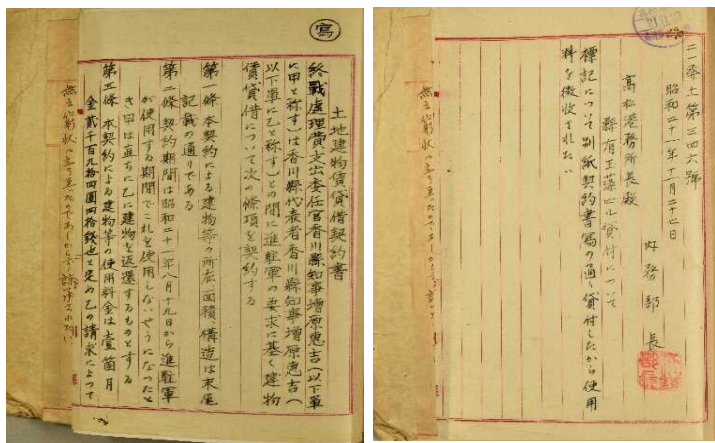 寫
土地建物賃貸借契約書
終戰處理費支出委任官香川縣知事增原惠吉(以下單
に甲と称す)は香川縣代表者香川縣知事增原惠吉(
以下單に乙と称す)との間に進駐軍の要求に基く建物
賃貸借について次の條項を契約する
第一條 本契約による建物等の所在、面積、構造は末尾
記載の通りである
第二條 契約期間は昭和二十一年八月十九日から進駐軍
が使用する期間でこれを使用しないやうになつたと
き甲は直ちに乙に建物を返還するものとする
第三條 本契約による建物等の使用料金は壹箇月
金貳千百九拾四圓四拾錢也と定め乙の請求によつて
二一発土第三四六號
昭和二十一年十一月二十七日
内務部長
高松港務所長殿
縣有玉藻ビル貸付について
標記について別紙契約書寫の通り貸付したから使用
料を徴収されたい